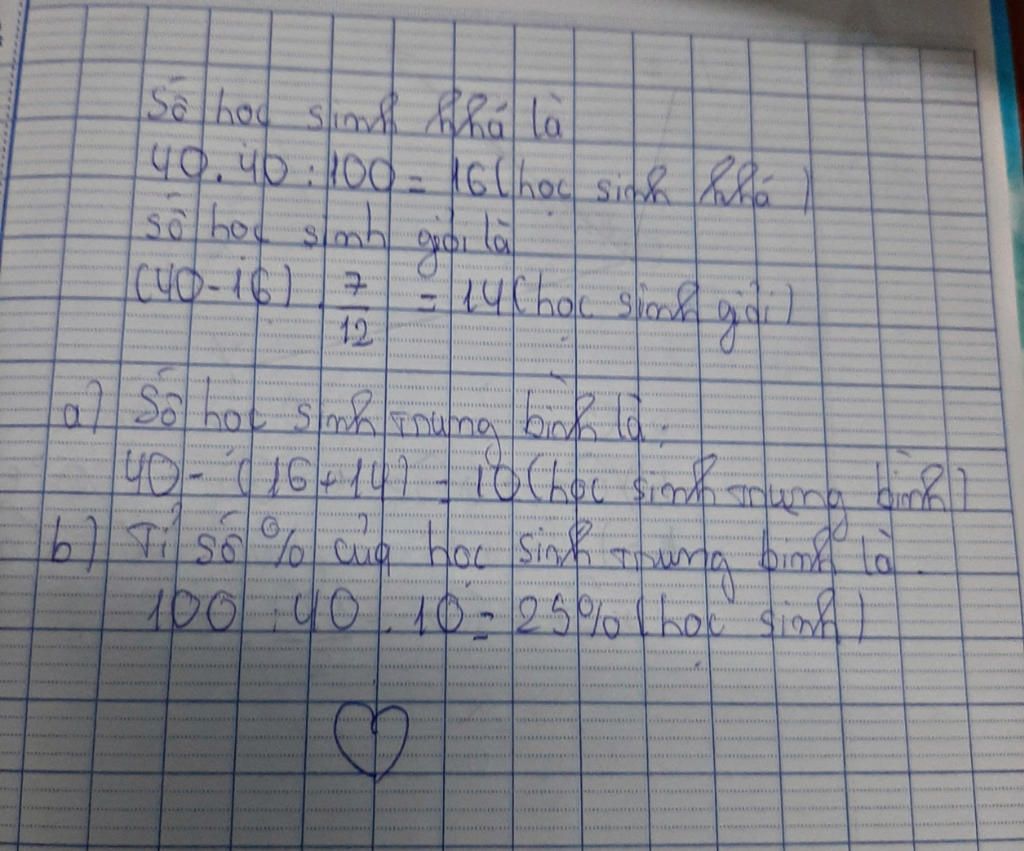 Số học sinh khá là
40.40:100=16(học sinh khá)
số học sinh giỏi là
(40-16).7/12=14(học sinh giỏi)
a) Số học sinh trung bình là:
40-(16+14)=10(học sinh trung bình)
b) Tỉ số % của học sinh trung bình là.
100:40.10=25%(học sinh)